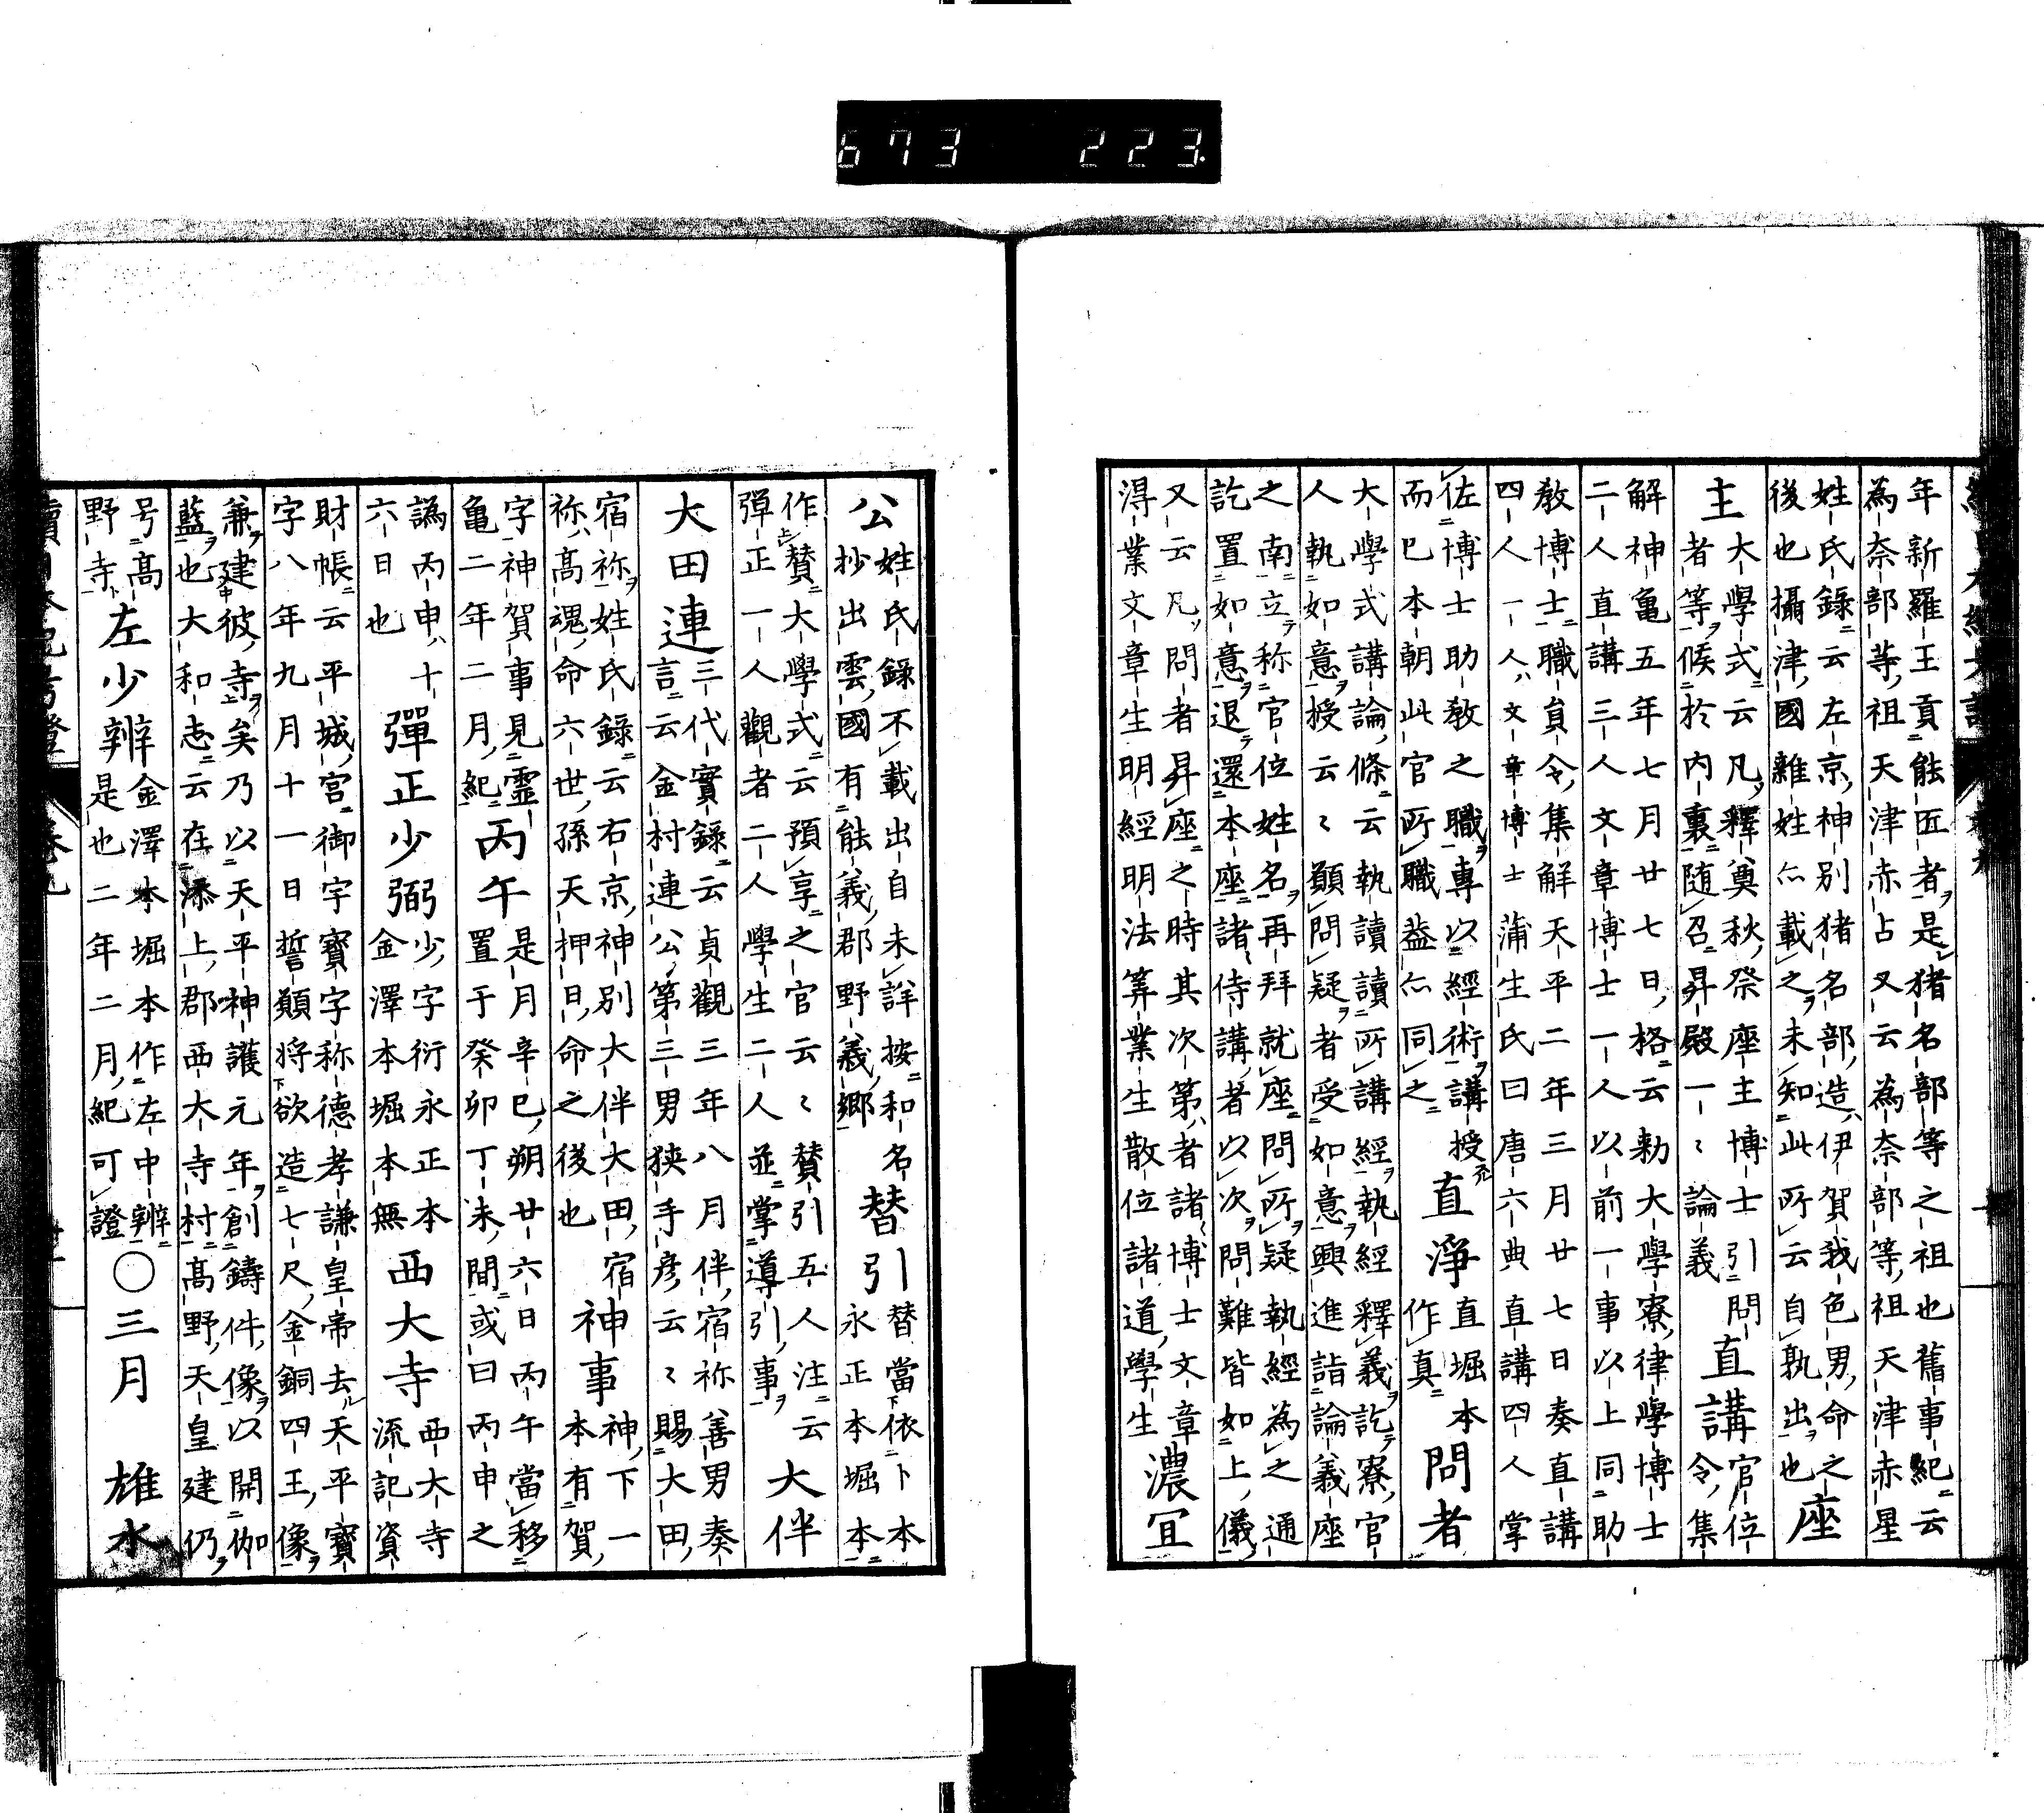 年新羅王貢能匠者是猪名部等之祖也舊事紀云
為奈部等祖天津赤占又云為奈部等祖天津赤星
姓氏錄云左京神別猪名部造伊賀我色男命之
後也攝津國雜姓亦載之未知此所云自孰出也
座
主
大學式云凡釋奠秋祭座主博士引問
者等候於内裏随召昇殿一〻論義
直講
官位
令集
解神亀五年七月廿七日格云勅大學寮律學博士
二人直講三人文章博士一人以前一事以上同助
教博士職員令集解天平二年三月廿七日奏直講
四人一人文章博士蒲生氏曰唐六典直講四人掌
佐博士助教之職專以經術講授
而已本朝此官所職盖亦同之
直淨
直堀本
作真
問者
大學式講論條云執讀讀所講經執經釋義訖寮官
人執如意授云〻願問疑者受如意興進詣論義座
之南立称官位姓名再拜就座問所疑執經為之通
訖置如意退還本座諸侍講者以次問難皆如上儀
又云凡問者昇座之時其次第者諸博士文章
得業文章生明經明法筭業生散位諸道學生
濃冝
公
姓氏錄不載出自未詳按和名
抄出雲國有能義郡野義郷
替引
替當依卜本
永正本堀本
作賛大學式云預享之官云〻賛引五人注云
弾正一人觀者二人學生二人並掌導引事
大伴
大田連
三代實録云貞觀三年八月伴宿祢善男奏
言云金村連公第三男狭手彦云〻賜大田
宿祢姓氏録云右京神別大伴大田宿
祢高魂命六世孫天押日命之後也
神事
神下一
本有賀
字神賀事見靈
亀二年二月紀
丙午
是月辛巳朔廿六日丙午當移
置于癸卯丁未間或曰丙申之
譌丙申十
六日也
彈正少弼
少字衍永正本
金澤本堀本無
西大寺
西大寺
流記資
財帳云平城宮御字寶字称德孝謙皇帝去天平寶
字八年九月十一日誓願将欲造七尺金銅四王像
兼建彼寺矣乃以天平神護元年創鑄件像以開伽
藍也大和志云在添上郡西大寺村高野天皇建仍
号高
野寺
左少辨
金澤本堀本作左中辨
是也二年二月紀可證
〇三月
雄水
673 223